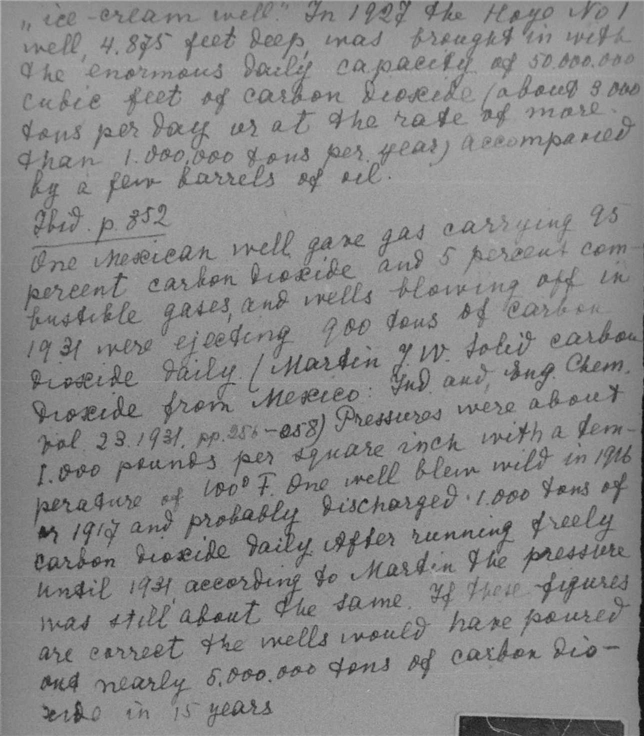 „ice-cream well." In 1927 the Hoyo No 1
well, 4.875 feet deep, was brought in with
the enormous daily capacity of 50.000.000
cubic feet of carbon dioxide (about 3000
tons per day or at the rate of more
than 1.000,000 tons per year) accompanied
by a few barrels of oil.
Ibid. p. 852
One Mexican well gave gas carrying 95
percent carbon dioxide and 5 percent com-
bustible gases, and wells blowing off in
1931 were ejecting 900 tons of carbon
dioxide daily (Martin J. W. Solid carbon
dioxide from Mexico: Ind. and Eng. Chem.
vol. 23. 1931. pp. 256-258) Pressures were about
1.000 pounds per square inch with a tem-
perature of 100° F. One well blew wild in 1916
or 1917 and probably discharged 1.000 tons of
carbon dioxide daily After running freely
until 1931, according to Martin the pressure
was still about the same. If these figures
are correct the wells would have poured
out nearly 5.000.000 tons of carbon dio-
xide in 15 years